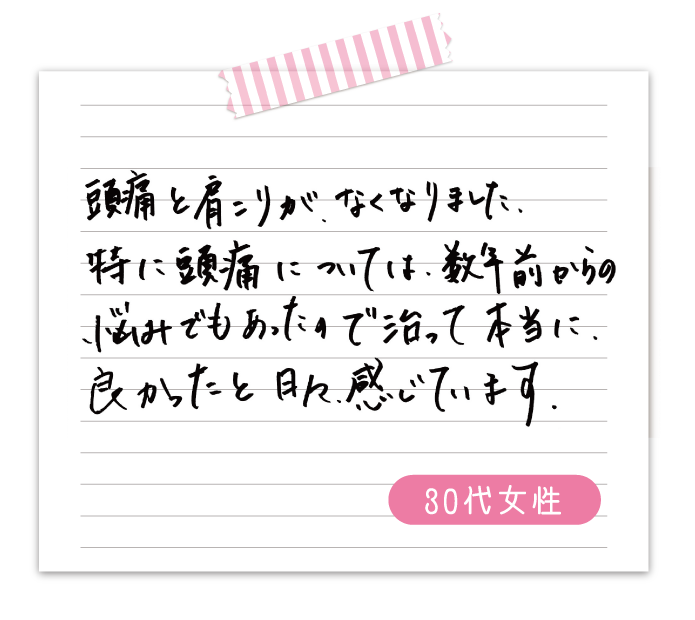 頭痛と肩こりが、なくなりました.
特に頭痛については、数年前からの
悩みでもあったので治って本当に、
良かったと日々、感じています.
30代女性